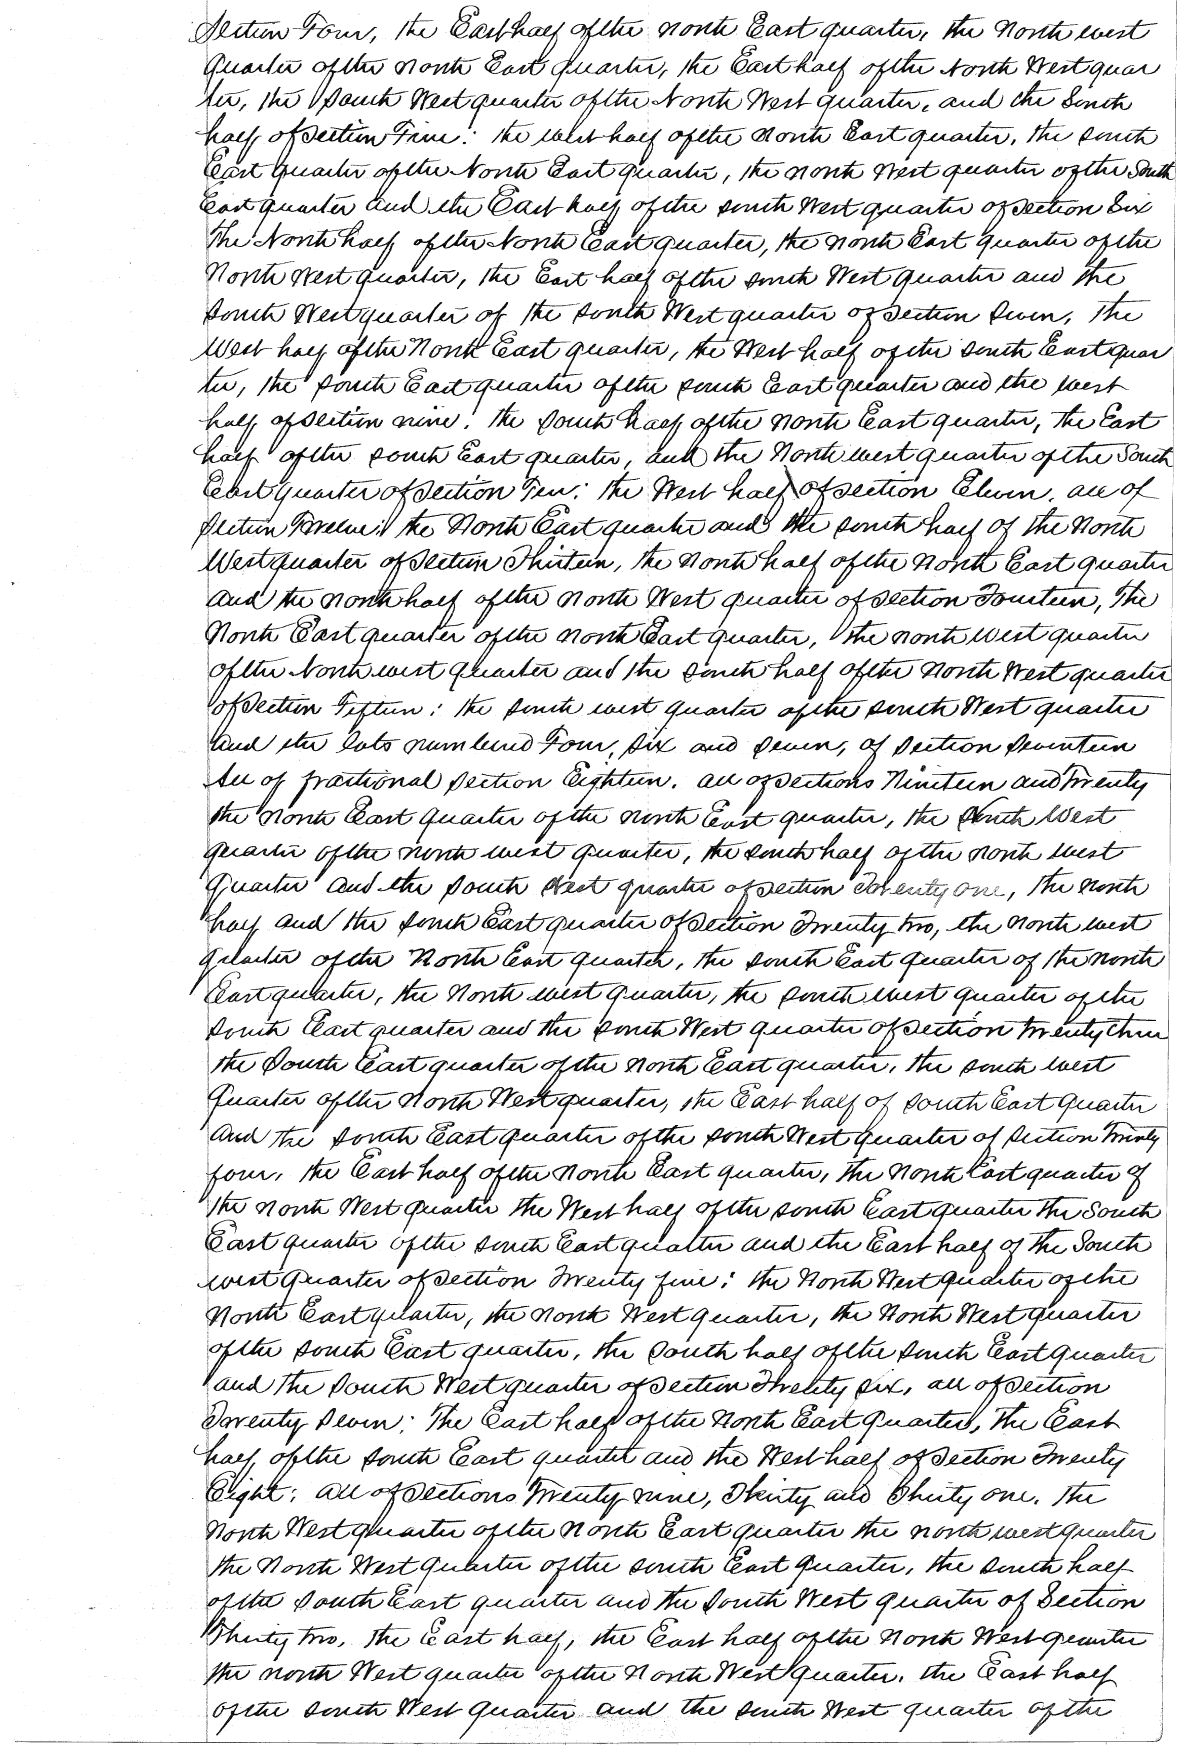 Section Four, the East half of the North East quarter, the North west
quarter of the North East quarter, the East half of the North West quar
ter, the South West quarter of the North West quarter, and the South
half of Section Five: the west half of the North East quarter, the south
East quarter of the North East quarter, the North West quarter of the South
East quarter and the East half of the south West quarter of Section Six
The North half of the North East quarter, the North East quarter of the
North West quarter, the East half of the south West quarter and the
South West quarter of the South West quarter of Section Seven, The
West half of the North East quarter, the West half of the south East quar
ter, the South East quarter of the south East quarter and the west
half of Section nine: the South half of the North East quarter, the East
half of the south East quarter, and the North west quarter of the South
East quarter of Section Ten: the West half of section Eleven, all of
Section Twelve: the North East quarter and the south half of the North
West quarter of Section Thirteen, the North half of the North East quarter
and the North half of the North West quarter of Section Fourteen, The
North East quarter of the North East quarter, the North West quarter
of the North west quarter and the south half of the North West quarter
of Section Fifteen: the south west quarter of the south West quarter
and the lots numbered Four, Six and Seven, of Section Seventeen
All of fractional Section Eighteen. all of Sections Nineteen and Twenty
the North East quarter of the North East quarter, the North West
quarter of the North west quarter, the South half of the North west
quarter and the South West quarter of Section Twenty one, the North
half and the South East quarter of Section Twenty two, the North west
quarter of the North East quarter, the South East quarter of the North
East quarter, the North west quarter, the South west quarter of the
South East quarter and the South West quarter of Section Twenty three
the South East quarter of the North East quarter, the south west
quarter of the North West quarter, the East half of South East quarter
and the South East quarter of the South West quarter of Section Twenty
four, the East half of the North East quarter, the North East quarter of
the North West quarter the West half of the south East quarter the South
East quarter of the south East quarter and the East half of the South
west quarter of Section Twenty five: the North West quarter of the
North East quarter, the North West quarter, the North West quarter
of the South East quarter, the South half of the South East quarter
and the South West quarter of Section Twenty six, all of Section
Twenty Seven: The East half of the North East quarter, The East
half of the South East quarter and the West half of Section Twenty
Eight: all of Sections Twenty nine, Thirty and Thirty one. the
North West quarter of the North East quarter the North west quarter
the North West quarter of the south East quarter, the South half
of the South East quarter and the South West quarter of Section
Thirty two, the East half, the East half of the North West quarter
the North West quarter of the North West quarter, the East half
of the South West quarter and the South West quarter of the